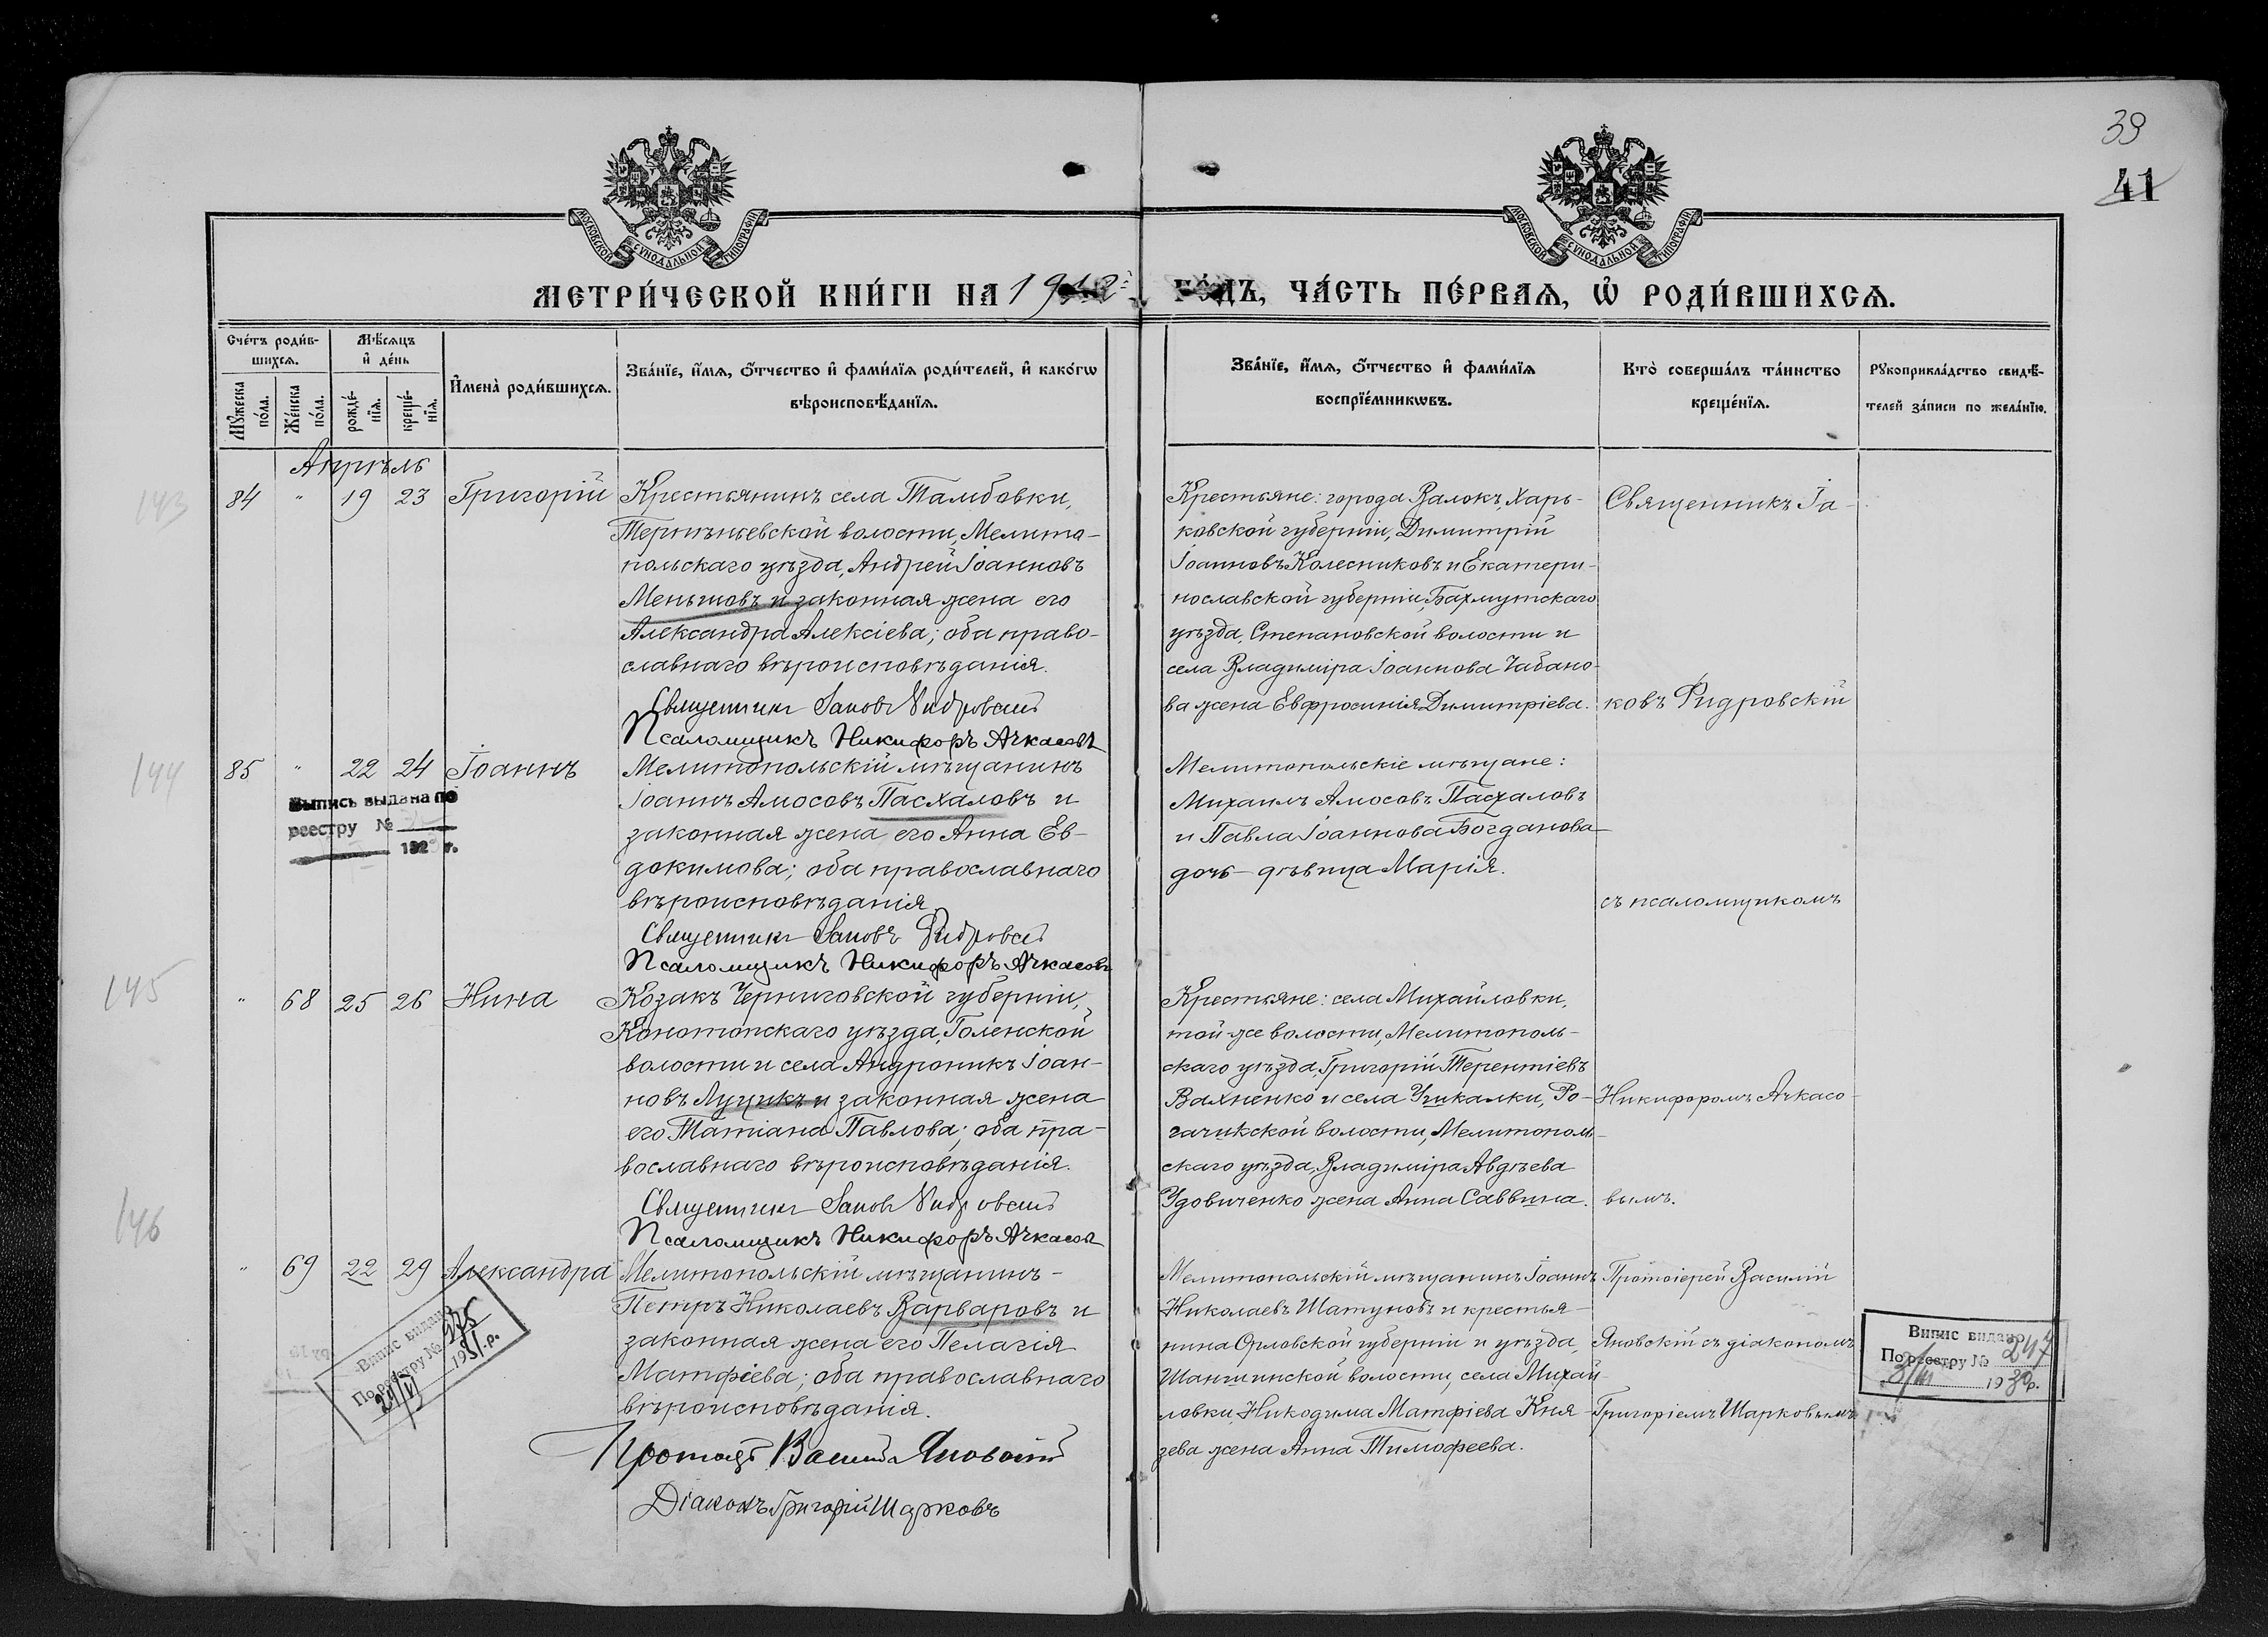 39
41
МОСКОВСКОЙ СѴНОДАЛЬНОЙ ТИПОГРАФІИ
МОСКОВСКОЙ СѴНОДАЛЬНОЙ ТИПОГРАФІИ
МЕТРИ́ЧЕСКОЙ КНИ́ГИ НА 1912 ГО́ДЪ, ЧА́СТЬ ПЕ́РВАѦ, Ѽ РОДИ́ВШИХСѦ.
Сче́тъ роди́в-
шихсѧ.
Мꙋ́жеска по́ла.
Же́нска по́ла.
Мѣ́сѧцъ
и҆ де́нь
рожде́-
нїѧ.
креще́-
нїѧ.
И҆мена̀ роди́вшихсѧ.
Зва́нїе, и҆́мѧ, ѻ҆́тчество и҆ фами́лїѧ роди́телей, и҆ како́гѡ
вѣроисповѣ́данїѧ.
Зва́нїе, и҆́мѧ, ѻ҆́тчество и҆ фами́лїѧ
воспрїе́мникѡвъ.
Кто̀ соверша́лъ та́инство
креще́нїѧ.
Рꙋкоприкла́дство свидѣ́-
телей за́писи по жела́нїю.
Апрѣль
143
84 " 19 23 Григорій
Крестьянинъ села Тамбовки,
Терпѣньевской волости, Мелито-
польскаго уѣзда, Андрей Іоанновъ
Меньшовъ и законная жена его
Александра Алексіева; оба право-
славнаго вѣроисповѣданія.
Священникъ Іаковъ Ридровскій
Псаломщикъ Никифоръ Ачкасовъ
Крестьяне: города Валокъ, Харь-
ковской губерніи, Димитрій
Іоанновъ Колесниковъ и Екатери-
нославской губерніи, Бахмутскаго
уѣзда, Степановской волости и
села Владиміра Іоаннова Чабано-
ва жена Евфросинія Димитріева.
Священникъ Іа-
ковъ Ридровскій
144
85 " 22 24 Іоаннъ
Выпись выдана по
реестру №
192 г.
Мелитопольскій мѣщанинъ
Іоаннъ Амосовъ Пасхаловъ и
законная жена его Анна Ев-
докимова; оба православнаго
вѣроисповѣданія.
Священникъ Іаковъ Ридровскій
Псаломщикъ Никифоръ Ачкасовъ
Мелитопольскіе мѣщане:
Михаилъ Амосовъ Пасхаловъ
и Павла Іоаннова Богданова
дочь - дѣвица Марія.
съ псаломщикомъ
145
" 68 25 26 Нина
Козакъ Черниговской губерніи,
Конотопскаго уѣзда, Голенской
волости и села Андроникъ Іоан-
новъ Луцикъ и законная жена
его Татіана Павлова; оба пра-
вославнаго вѣроисповѣданія.
Священникъ Іаковъ Ридровскій
Псаломщикъ Никифоръ Ачкасовъ
Крестьяне: села Михайловки,
той-же волости, Мелитополь-
скаго уѣзда, Григорій Терентіевъ
Вахненко и села Ушкалки, Ро-
гачикской волости, Мелитополь-
скаго уѣзда, Владиміра Авдѣева
Удовиченко жена Анна Саввина.
Никифоромъ Ачкасо-
вымъ.
146
" 69 22 29 Александра
Випис видано
По реєстру № 275
21/VI 1931 р.
Мелитопольскій мѣщанинъ -
Петръ Николаевъ Варваровъ и
законная жена его Пелагія
Матфіева; оба православнаго
вѣроисповѣданія.
Протоіер Василій Яновскій
Діаконъ Григорій Шарковъ
Мелитопольскій мѣщанинъ Іоаннъ
Николаевъ Шатуновъ и крестья-
нина Орловской губерніи и уѣзда,
Шаншинской волости, села Михай-
ловки Никодима Матфіева Кня-
зева жена Анна Тимофеева.
Протоіерей Василій
Яновскій съ діакономъ
Григоріемъ Шарковымъ
Випис видано
По реєстру № 247
3/III 1930 р.